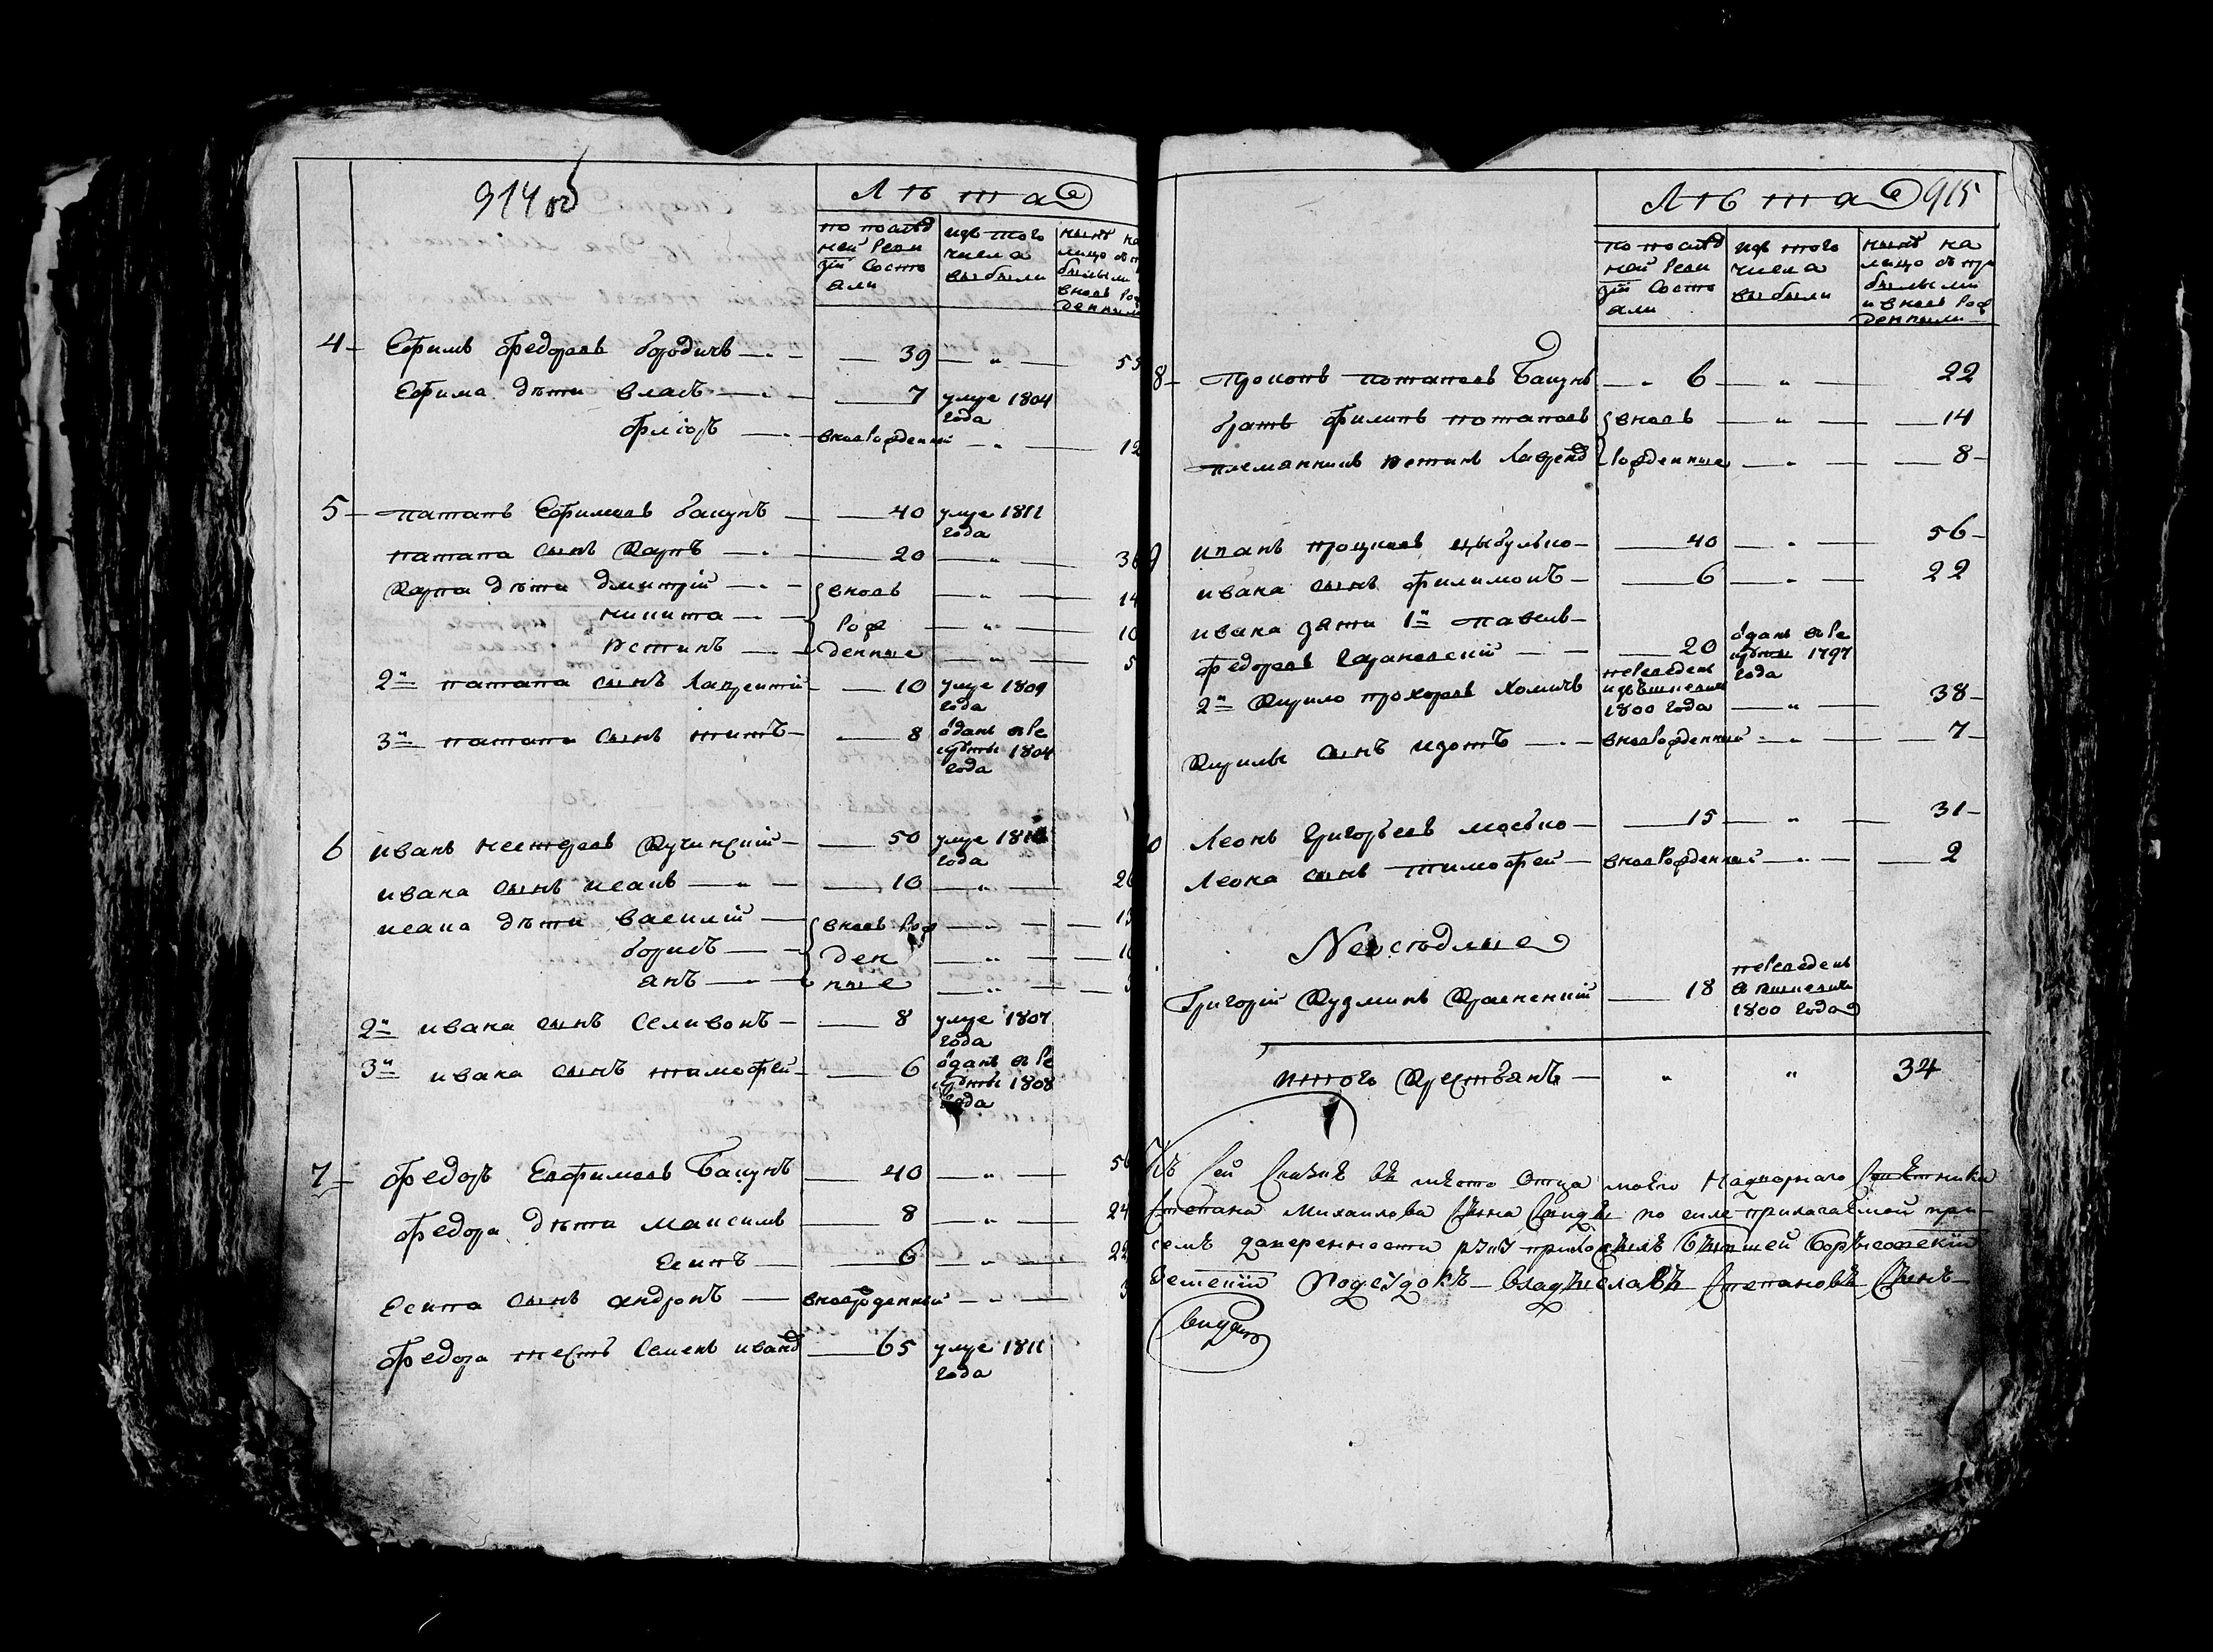 914об
Лѣта
по послѣд
ней Реви
зіи Состо
яли
изъ того
числа
выбыли
нынѣ на
лицо съ п
былыми
вновь Рож
денными
4 Ефимъ Федоровъ бородичъ 39 " 55
Ефима дѣти Власъ 7 умре 1804
года
Фліоръ вновьРожденный " 12
5 Патапъ Ефимовъ бацунъ 40 умре 1811
года
патапа сынъ Карпъ 20 " 36
Карпа дѣти дмитрій вновь " 14
никита Рож " 10
Устинъ денные " 5
2й патапа сынъ Лаврентій 10 умре 1809
года
3й патапа сынъ титъ 8 оданъ въ Ре
круты 1804
года
6 иванъ нестеровъ Кучинскій 50 умре 181
года
ивана сынъ исакъ 10 " 26
исака дѣти василій вновь Рож "
борисъ ден "
янъ ные "
2й ивана сынъ Селивонъ 8 умре 1807
года
3й ивана сынъ тимофей 6 оданъ въ Ре
круты 1808
года
7 Федоръ Ефимовъ Бацунъ 40 " 56
Федора дѣти максимъ 8 " 24
есипъ 6 " 22
есипа сынъ андронъ вноврожденный "
Федора тесть Семенъ иванов 65 умре 1811
года
Лѣта 915
по послѣд
ней Реви
зіи Состо
яли
изъ того
числа
выбыли
нынѣ на
лицо съ при
былыми
и вновь Рож
денными
8 Прокопъ потаповъ Бацунъ 6 " 22
братъ Филипъ потаповъ вновь " 14
племянникъ Устинъ Лаврено Рожденные " 8
9 иванъ процковъ цыбулько 40 " 56
ивана сынъ Филимонъ 6 " 22
ивана зяти 1й павелъ
Федоровъ 20 оданъ въ Ре
круты 1797
года
2й Кирило прохоровъ Хомичъ переведенъ
1800 года " 38
Кирилы сынъ изотъ вновьРожденный " 7
Леонъ Григорьевъ моська 15 " 31
Леона сынъ тимофей вновьРожденный " 2
Неосѣдлые
Григорій Кузминъ Красненкій 18 переведенъ
1800 года
итого Крестьянъ " " 34
Къ сей сказкѣ въ мѣсто Отца моего Надворнаго Совѣтника
Степана Михайлова Сына по силе прилагаемой при
семъ доверенности руку приложилъ бывшей Борысовскій
Земскій Подсудокъ Владыславъ Степановъ Сынъ